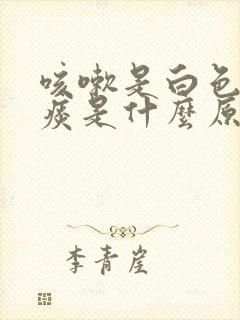 咳嗽是白色
痰是什麼原
李青崖